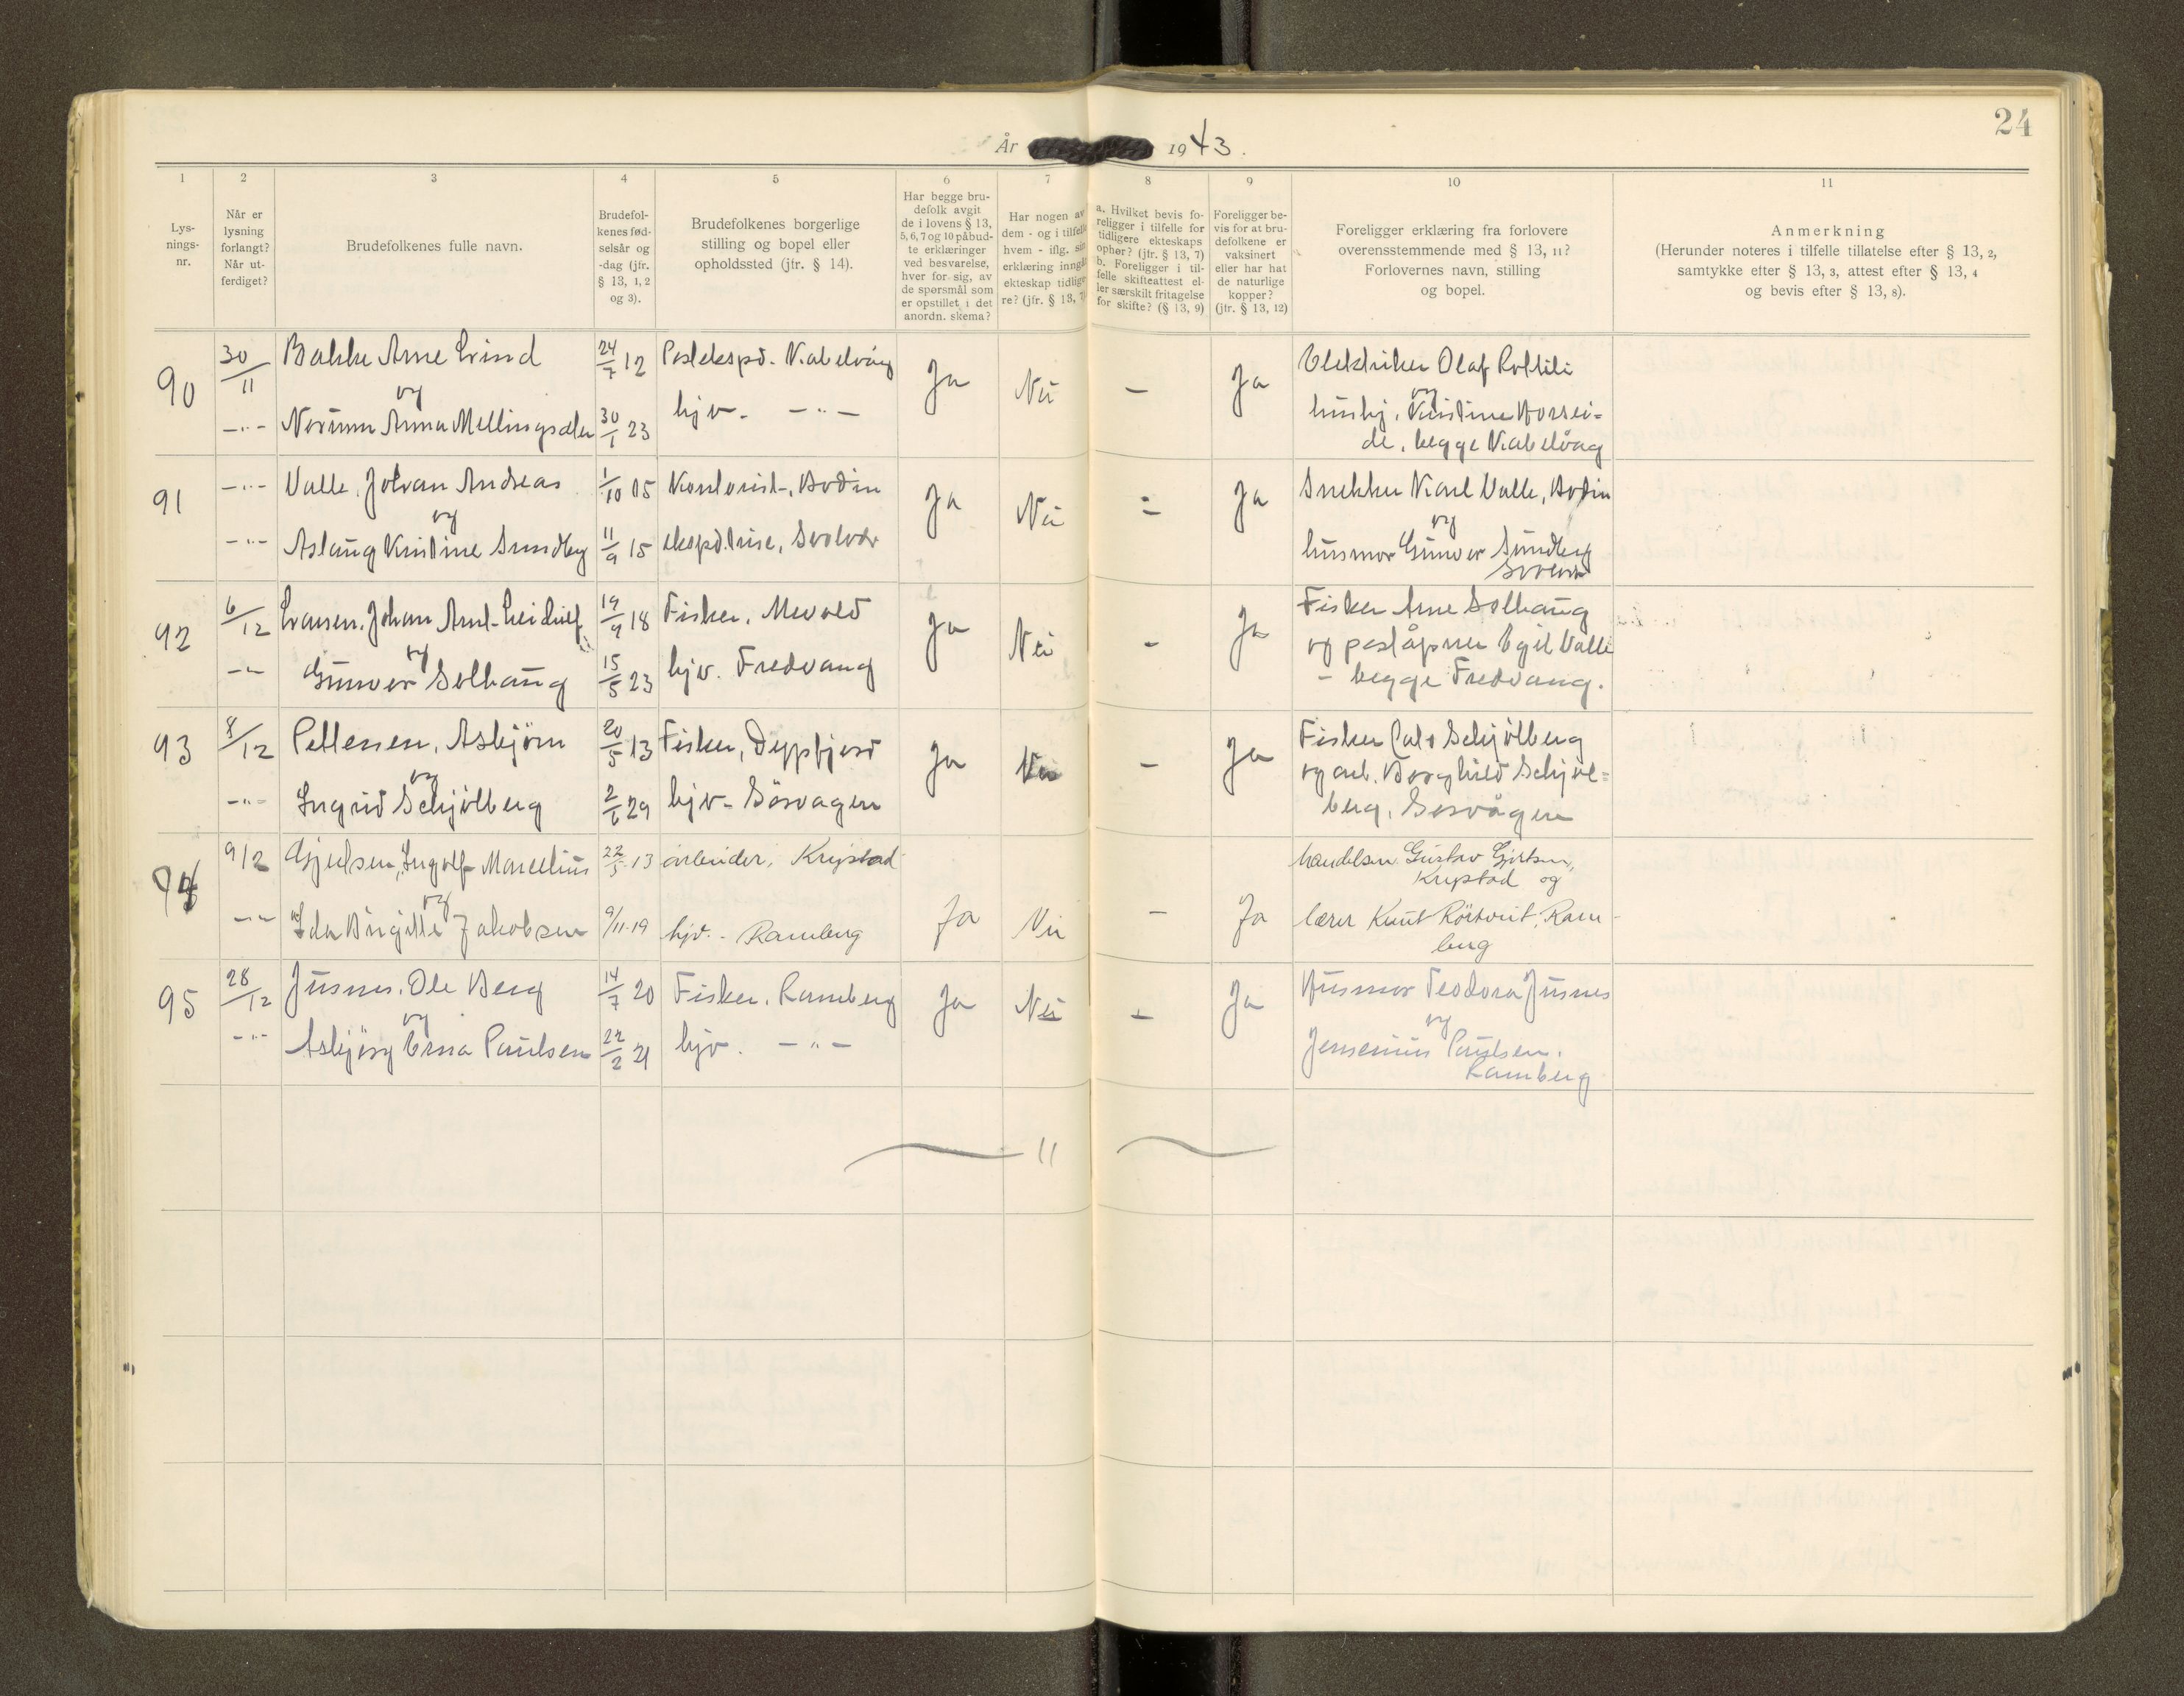 24
År 1943.
1 2 3 4 5 6 7 8 9 10 11
Lys-
nings-
nr.
Når er
lysning
forlangt?
Når ut-
ferdiget?
Brudefolkenes fulle navn.
Brudefol-
kenes fød-
selsår og
-dag (jfr.
§ 13, 1, 2
og 3).
Brudefolkenes borgerlige
stilling og bopel eller
opholdssted (jfr. § 14).
Har begge bru-
defolk avgit
de i lovens § 13,
5, 6, 7 og 10 påbud-
te erklæringer
ved besvarelse,
hver for sig, av
de spørsmål som
er opstillet i det
anordn. skema?
Har nogen av
dem - og i tilfelle
hvem - iflg. sin
erklæring inngått
ekteskap tidlige-
re? (jfr. § 13, 7)
a. Hvilket bevis fo-
religger i tilfelle for
tidligere ekteskaps
ophør? (jfr. § 13, 7)
b. Foreligger i til-
felle skifteattest el-
ler særskilt fritagelse
for skifte? (§ 13, 9)
Foreligger be-
vis for at bru-
defolkene er
vaksinert
eller har hat
de naturlige
kopper?
(jfr. § 13, 12)
Foreligger erklæring fra forlovere
overensstemmende med § 13, 11?
Forlovernes navn, stilling
og bopel.
Anmerkning
(Herunder noteres i tilfelle tillatelse efter § 13, 2,
samtykke efter § 13, 3, attest efter § 13, 4
og bevis efter § 13, 8).
90 30/11 Bakke Arne Eivind 24/7 12 Postekspd. Kabelvåg Ja Nei — Ja Elektriker Olaf
og
—"— Norunn Anna Mellingsæter 30/1 23 hjv. —"— hushj. Kristine Horsei=
de, begge Kabelvåg
91 —"— Valle, Johan Andreas 1/10 05 Kontorist, Bodin Ja Nei = Ja Snekker Karl Valle, Bodin
og og
—"— Aslaug Kristine Sundby 11/9 15 ekspd.trise, Svolvær husmor Gunvor Sundby
Svolvær
92 6/12 Evansen, Johan Arnt 19/9 18 Fisker, Mevold Ja Nei - Ja Fisker Arne Solhaug
og og poståpner Egil Valle
—"— Gunvor Solhaug 15/5 23 hjv. Fredvang - begge Fredvang.
93 8/12 Pettersen, Asbjörn 20/5 13 Fisker, Dypfjord Ja Nei - Ja Fisker Schjölberg
og og arb. Borghild Schjöl=
—"— Ingrid Schjölberg 2/6 29 hjv. Sörvagen berg, Sorvågen
94 9/12 Gjertsen, Ingolf Marcelius 22/5 13 arbeider, Krystad Ja Nei - Ja handelsm. Gustav Gjertsen,
Krystad og
og
—"— Ida Birgitte Jakobsen 9/11-19 hjv. - Ramberg lærer Knut Rörtveit, Ram-
berg
95 28/12 Jusnes, Ole Berg 14/7 20 Fisker, Ramberg Ja Nei - Ja Husmor Teodora Jusnes
og og
—"— Asbjörg Erna Paulsen 22/2 21 hjv. —"— Jensenius Paulsen,
Ramberg